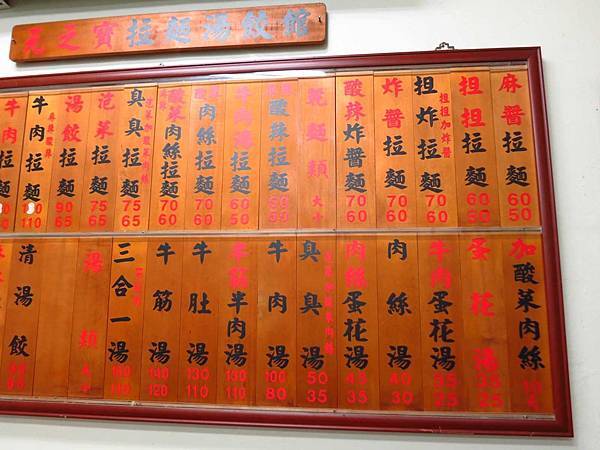 元之寶拉麵湯餃館
麻醬拉麵 60 50
担担拉麵 60 50
担炸拉麵 担担加炸醬 70 60
炸醬拉麵 70 60
酸辣炸醬麵 70 60
乾麵類 大 小
酸辣拉麵 60 50
牛肉湯拉麵 60 50
肉絲拉麵 70 60
酸菜肉絲拉麵 70 60
臭臭拉麵 75 65
泡菜拉麵 75 65
湯餃拉麵 90 65
牛肉拉麵 麻辣酸辣 110
牛肉拉麵
加酸菜肉絲
蛋花湯 35 25
牛肉蛋花湯 35 25
肉絲湯 40 30
肉絲蛋花湯 45 35
臭臭湯 50 35
牛肉湯 100 80
半筋半肉湯 130 110
牛肚湯 130 110
牛筋湯 140 120
三合一湯
湯類 大 小
清湯餃